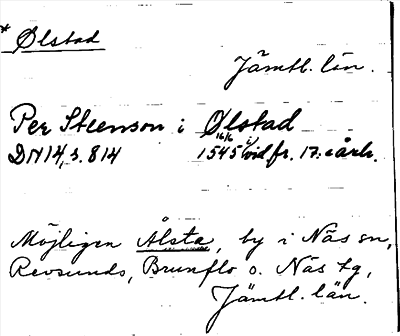 * Ølstad
Jämtl. län.
Per Steenson i Ølstad
DN14, s. 814 1545 16/6 vid fr. 17: e årh.
Möjligen Ålsta, by i Näs sn,
Revsunds, Brunflo o. Näs tg,
Jämtl. län.